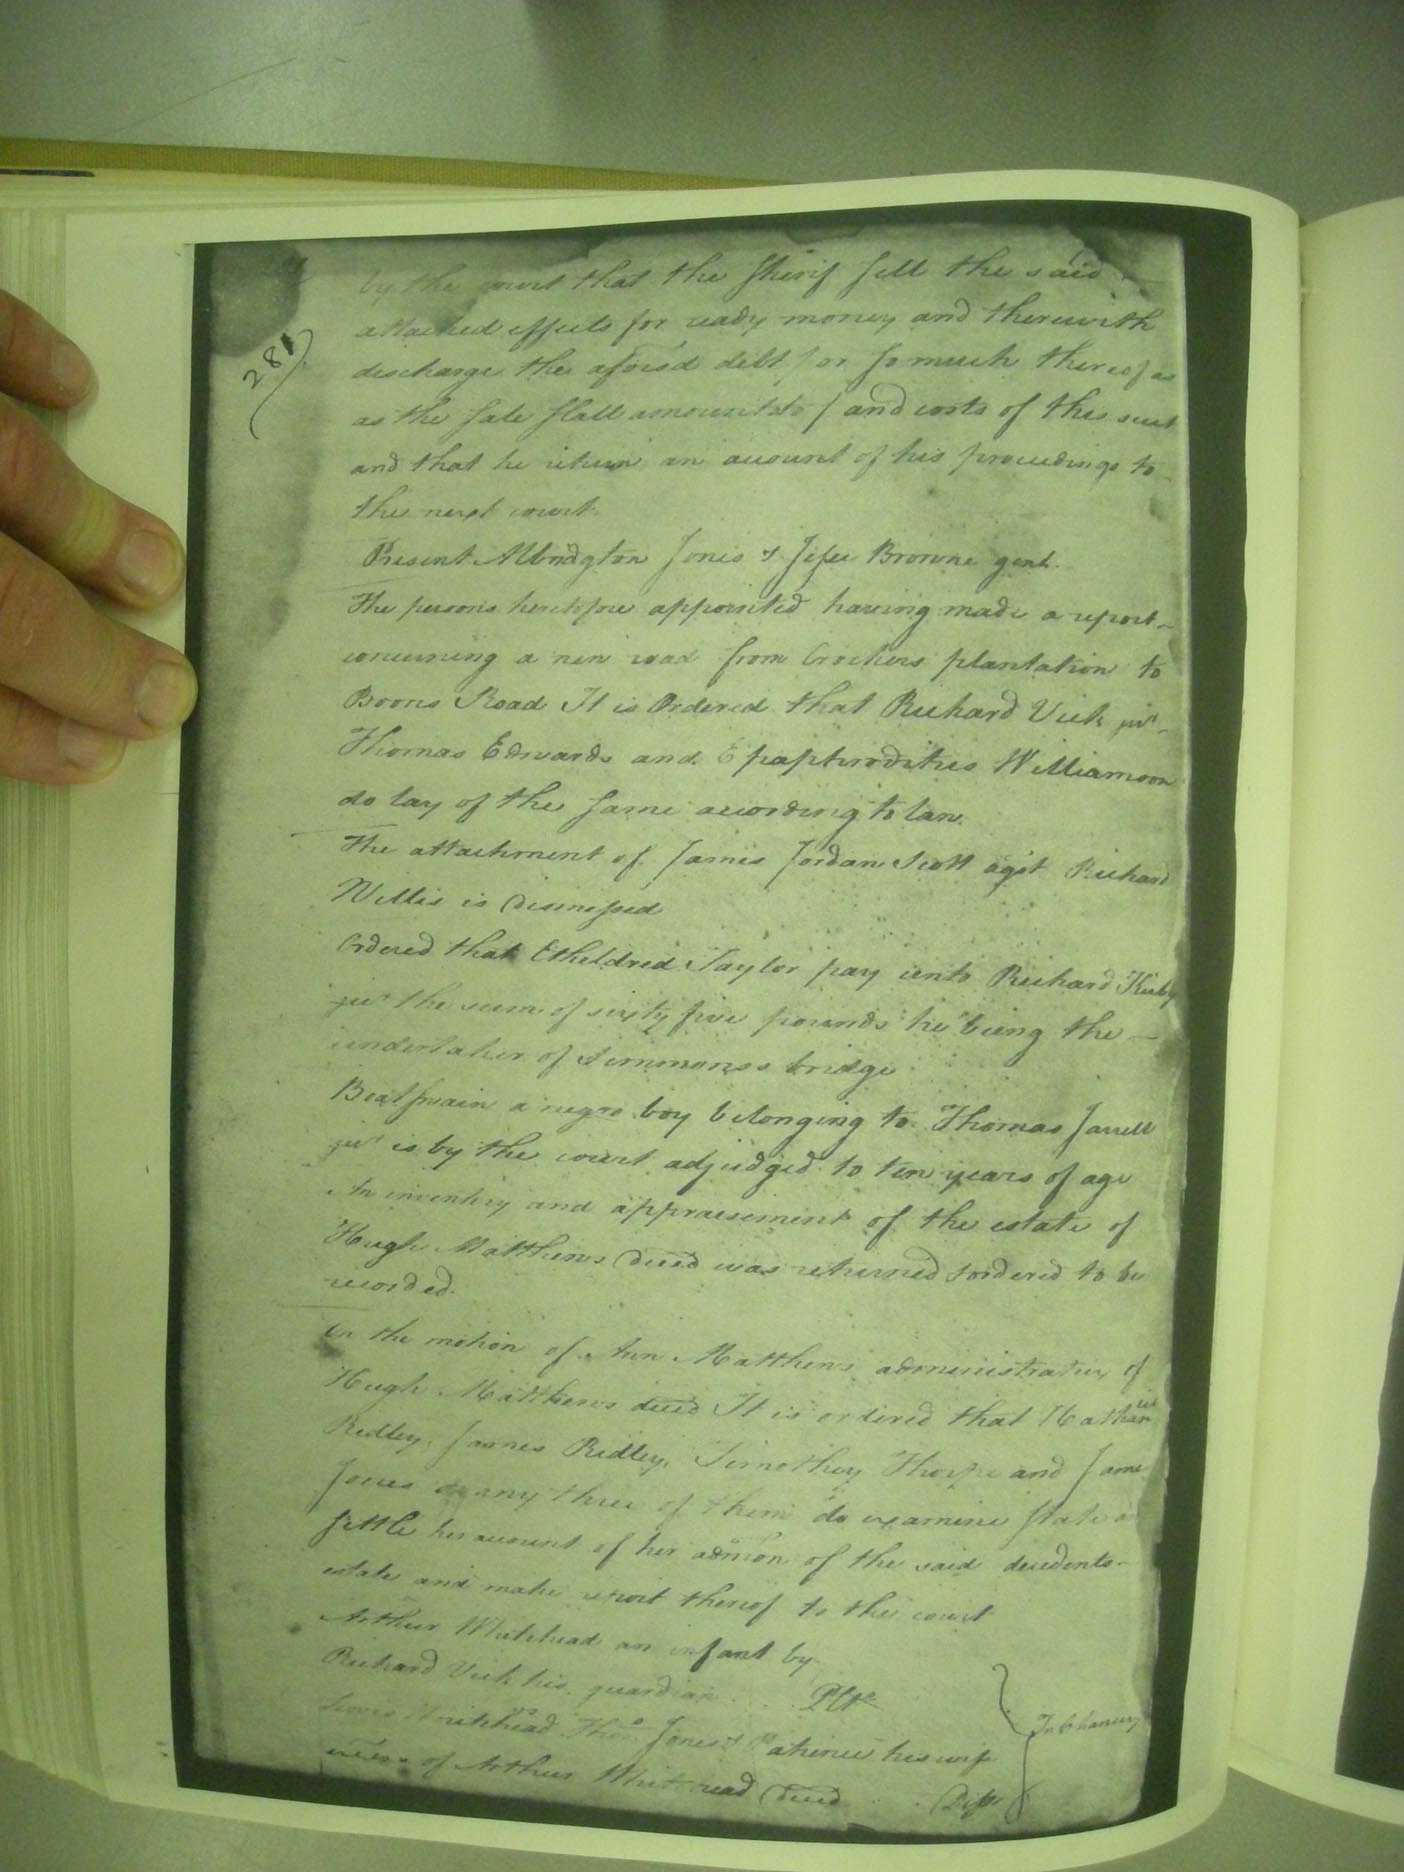 281
by the court that the Sherif sell the said
attached effects for ready money and therewith
discharge the aforesd debt / or so much thereof as
as the sale shall amount to / and costs of this suit
and that he return an account of his proceedings to
the next court.
Present Albridgton Jones & Jesse Browne gent.
The persons heretofore appointed having made a report
concerning a new road from Crockers plantation to
Boons Road It is Ordered that Richard Vick junr
Thomas Edwards and Epaphroditus Williamson
do lay of the same according to law.
The attachment of James Jordan Scott agst Richard
Willis is dismissed
Ordered that Etheldred Taylor pay unto Richard Kirby
junr the sum of sixty five pounds he being the
undertaker of Simmonss bridge
Boatswain a negro boy belonging to Thomas Jarrell
junr is by the court adjudged to ten years of age
An inventory and appraisement of the estate of
Hugh Matthews decd was returned & ordered to be
recorded.
On the motion of Ann Matthews administratrix of
Hugh Matthews decd It is ordered that Nathaniel
Ridley, James Ridley, Timothy Thorpe and Jame
Jones or any three of them do examine state an
settle her account of her admon of the said decedents
estate and make report thereof to the court
Arthur Whitehead an infant by
Richard Vick his guardian Plte
In Chancery
Lewis Whitehead Thos Jones & Patience his wife
exers of Arthur Whitehead decd Dfts